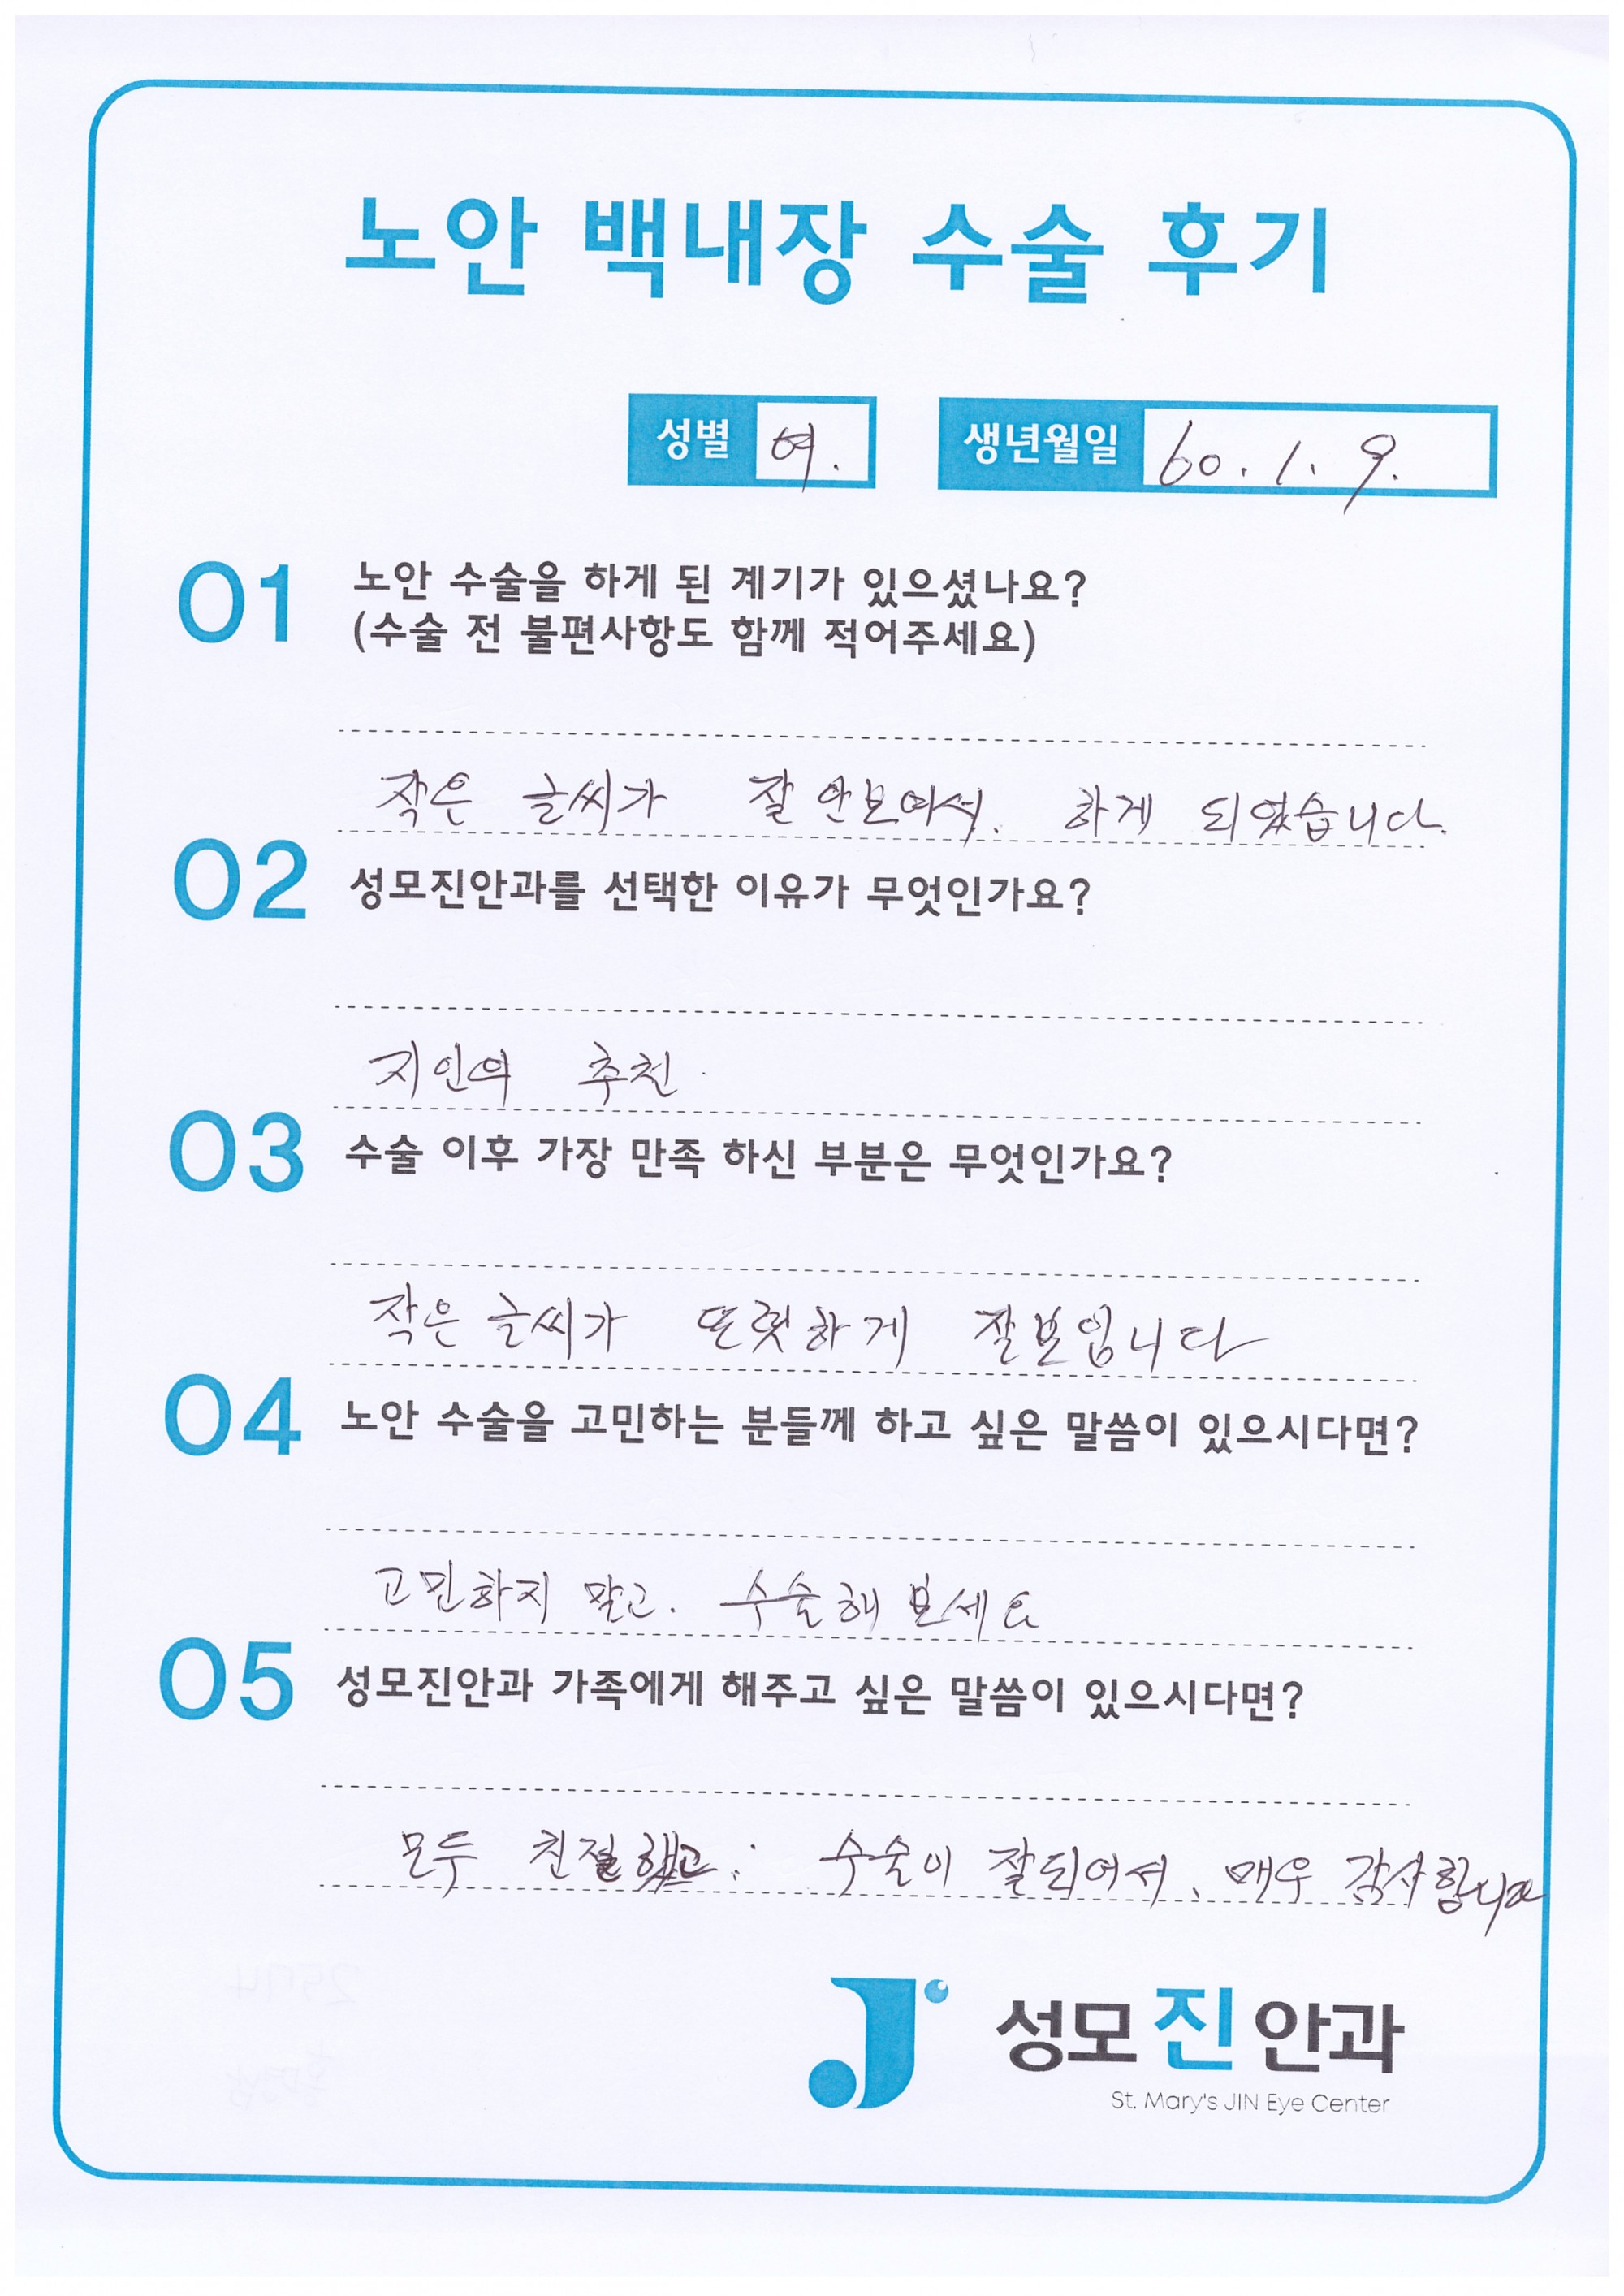 노안 백내장 수술 후기
성별 여. 생년월일 60. 1. 9.
01 노안 수술을 하게 된 계기가 있으셨나요?
(수술 전 불편사항도 함께 적어주세요)
작은 글씨가 잘 안보여서. 하게 되었습니다.
02 성모진안과를 선택한 이유가 무엇인가요?
지인의 추천.
03 수술 이후 가장 만족 하신 부분은 무엇인가요?
작은 글씨가 또렷하게 잘보입니다
04 노안 수술을 고민하는 분들께 하고 싶은 말씀이 있으시다면?
고민하지 말고. 수술해 보세요
05 성모진안과 가족에게 해주고 싶은 말씀이 있으시다면?
모두 친절했고. 수술이 잘되어서. 매우 감사합니다
성모진안과
St. Mary's JIN Eye Center